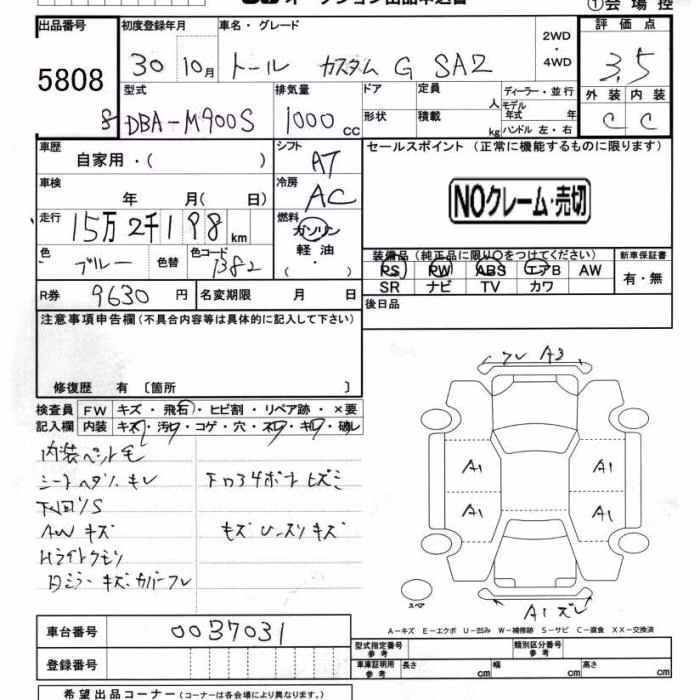 オークション出品申込書
①会場控
出品番号 初度登録年月 車名・グレード 2WD・4WD 評価点
5808 30 10月 トール カスタム G SA2 3.5
型式 排気量 ドア 定員 人 ディーラー・並行 外装 内装
8 DBA-M900S 1000 CC 形状 積載 kg モデル年式 年 ハンドル 左・右 C C
車歴 自家用・( ) シフト AT セールスポイント (正常に機能するものに限ります)
車検 年 月( 日) 冷房 AC
NOクレーム・売切
走行 15万2千198km 燃料 ガソリン 軽油・( ・ )
色 ブルー 色替 色コード 1382 装備品(純正品に限り○をつけてください) 新車保証書
PS PW ABS エアB AW 有・無
SR ナビ TV カワ
R券 9630円 名変期限 月 日 後日品
注意事項申告欄(不具合内容等は具体的に記入して下さい)
修復歴 有〔箇所 〕
検査員 FW キズ・飛石・ヒビ割・リペア跡・×要
記入欄 内装 キズ・汚れ・コゲ・穴・スレ・キレ・破レ
内装ペット毛
キレ
下回りS
AWキズ キズ
Hライトクモリ
ミラーキズカバーワレ
A3
A1 A1
A1 A1
A1 ズレ
スペア
A-キズ E-エクボ U-凹み W-補修跡 S-サビ C-腐食 XX-交換済
車台番号 0037031
登録番号
型式指定番号 参考 類別区分番号 参考
車庫証明用 参考 長さ cm 幅 cm 高さ cm
希望出品コーナー(コーナーは各会場により異なります。)